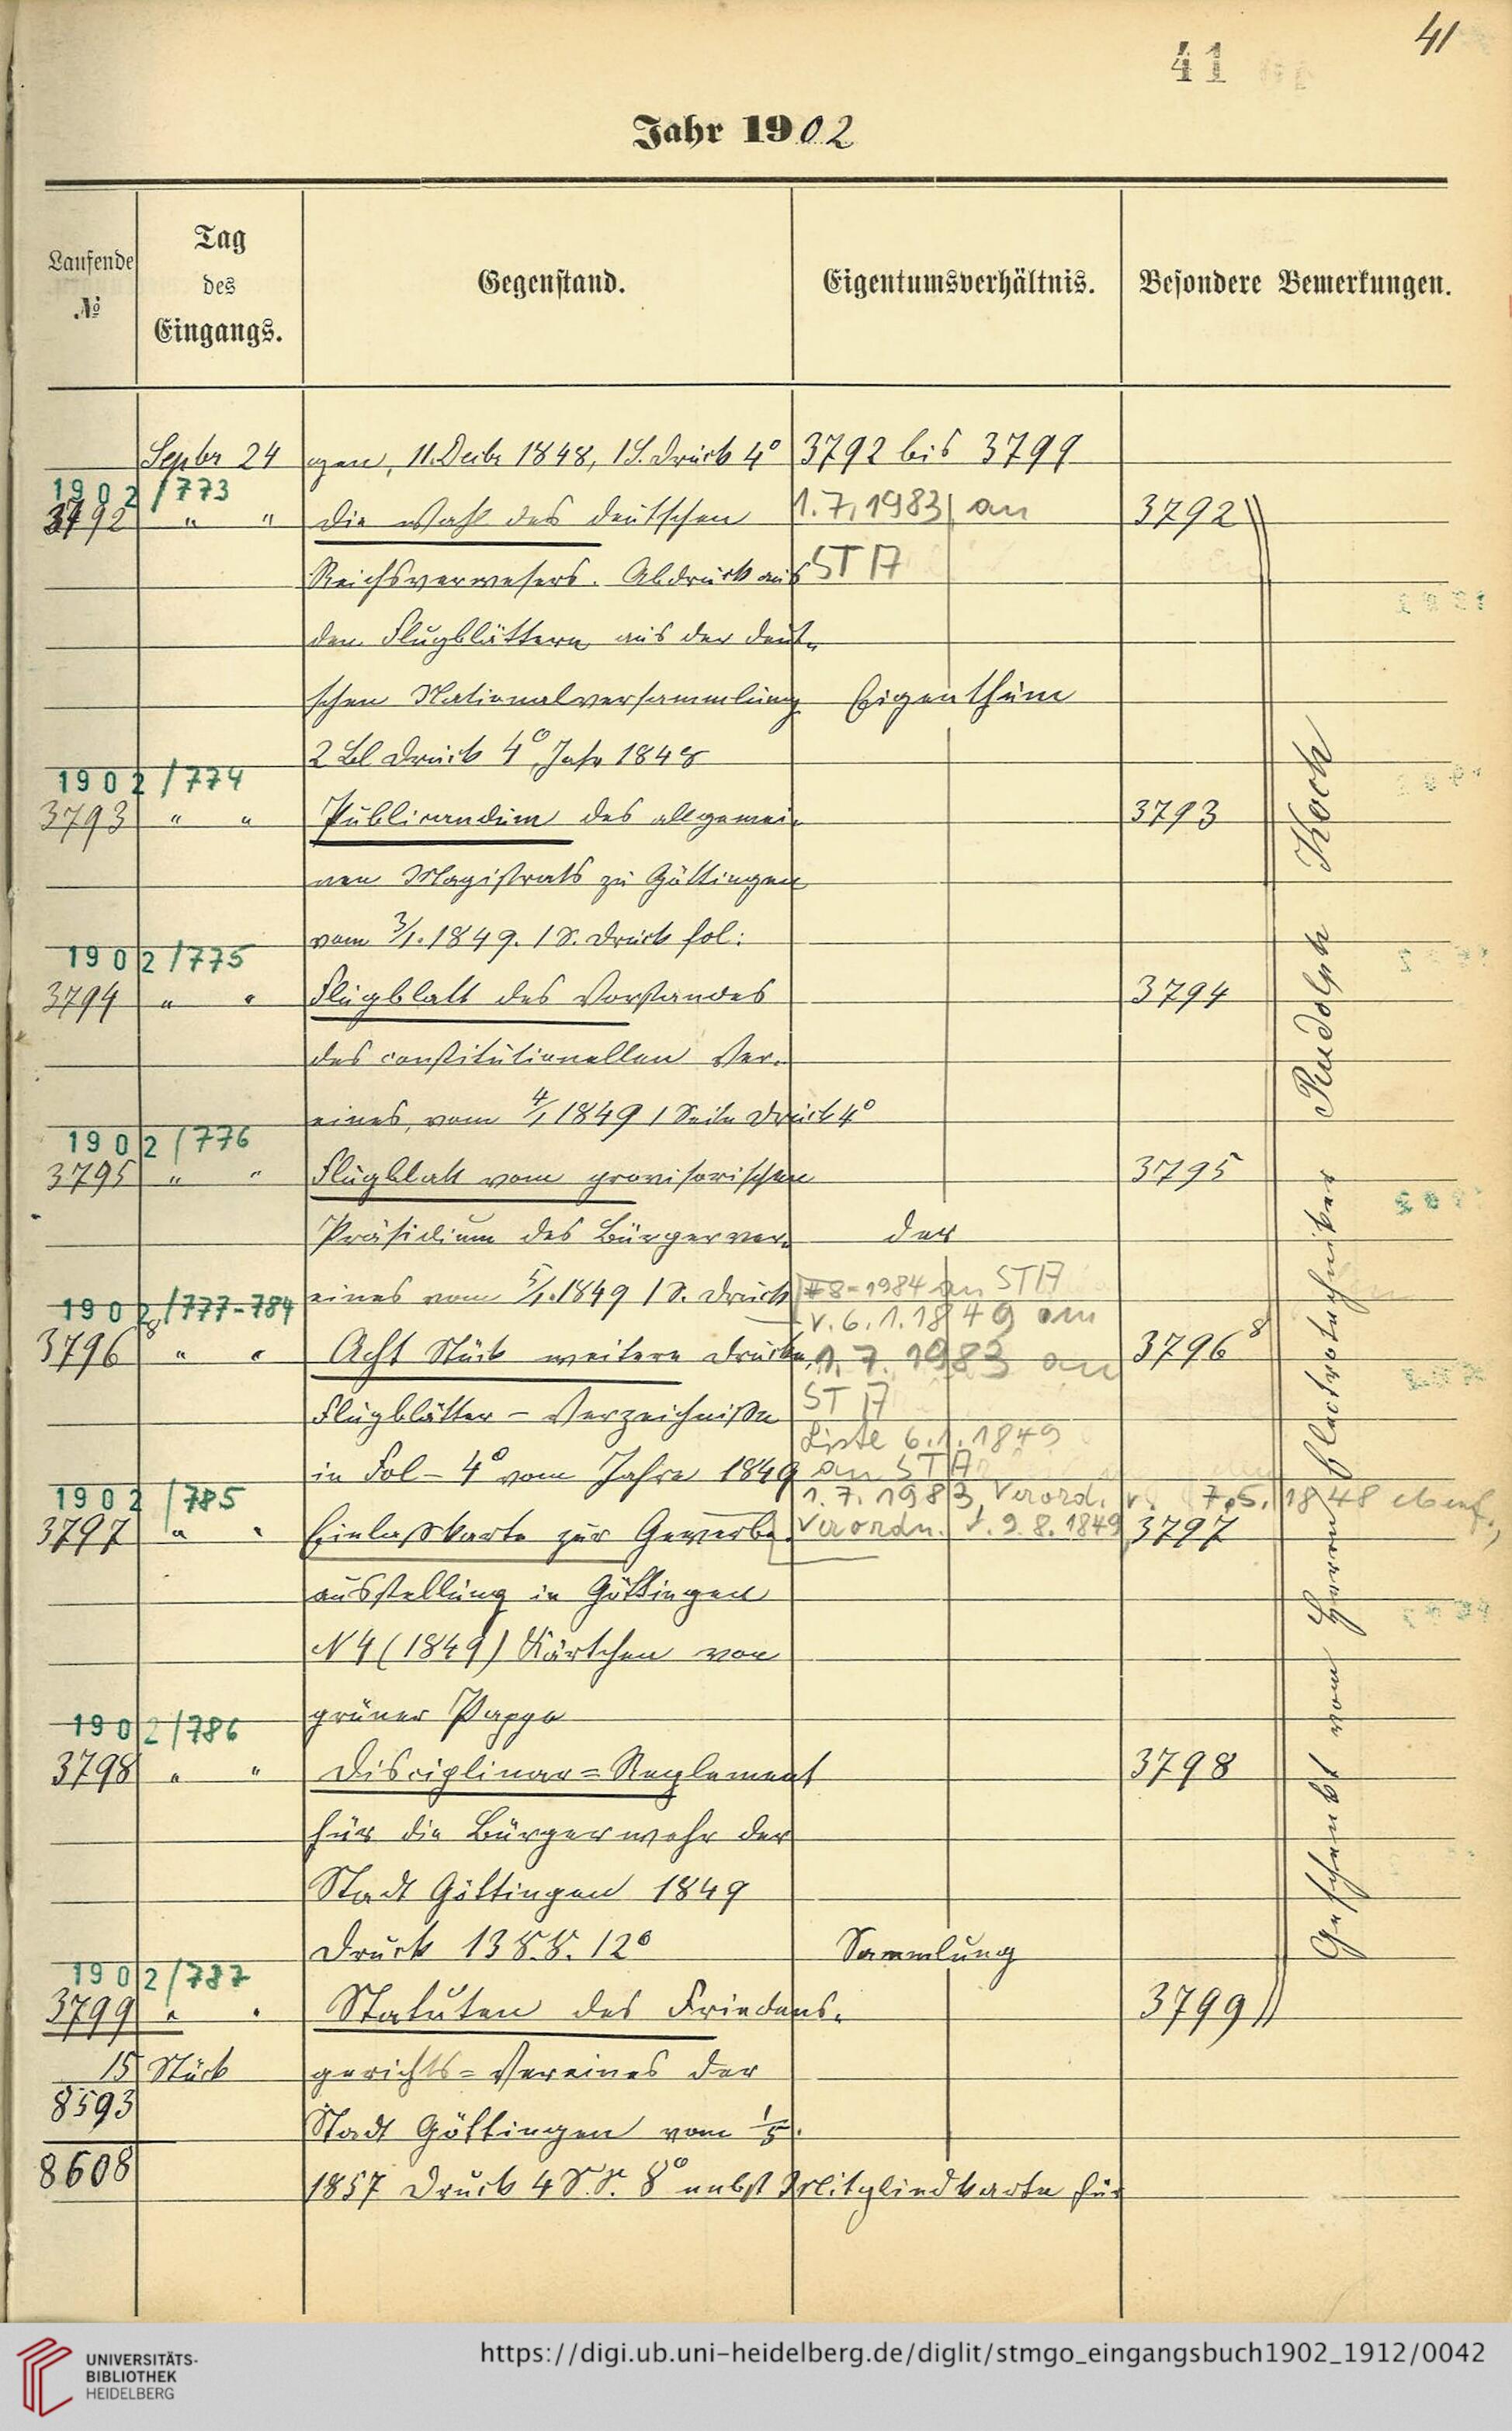 41
41
Jahr 1902
Laufende
№
Tag
des
Eingangs.
Gegenstand.
Eigentumsverhältnis.
Besondere Bemerkungen.
Septbr 24 gen, 11. Decbr 1848, 1 S. Druck 4° 3792 bis 3799
1902/773
3792 " " Die Wahl des deutschen 1.7.1983 an 3792
Reichsverwesers. Abdruck aus STA
den Flugblättern aus der deut-
schen Nationalversammlung Eigenthum
2 Bl Druck 4°, Jahr 1848
1902/774
3793 " " Publicandum des allgemei- 3793
nen Magistrats zu Göttingen
vom 3/1. 1849. 1 S. Druck fol:
1902/775
3794 " " Flugblatt des Vorstandes 3794
des constitutionellen Ver-
eines, vom 4/1 1849 1 Seite Druck 4°
1902/776
3795 " " Flugblatt vom provisorischen 3795
Präsidium des Bürgerver- der
eines vom 5/1. 1849 1 S. Druck 1984 an STA
1902/777-784 v. 6.1.1849 am
3796 8 " " Acht Stück weitere Drucke, 1.7.1983 an 3796 8
Flugblätter - Verzeichniße STA
Liste 6.1.1849
in Fol - 4° vom Jahre 1849 an STA
1902/785 1.7.1983, Verord. v. 7.5.1848 ebenf.,
3797 " " Einlaßkarte zur Gewerbe- Verordn. v. 9.8.1849 3797
ausstellung in Göttingen
N 4 (1849) Kärtchen von
grüner Pappe
1902/786
3798 " " Disciplinar=Reglement 3798
für die Bürgerwehr der
Stadt Göttingen 1849
Druck 13 S.S. 12° Sammlung
1902/787
3799 " " Statuten des Friedens- 3799
15 Stück gerichts=Vereines der
8593
Stadt Göttingen vom 1/5.
8608
1857 Druck 4 S.S. 8° nebst Mitgliedkarte für
Geschenkt vom Herrn Electrotechniker Rudolph Koch
UNIVERSITÄTS-
BIBLIOTHEK
HEIDELBERG
https://digi.ub.uni-heidelberg.de/diglit/stmgo_eingangsbuch1902_1912/0042